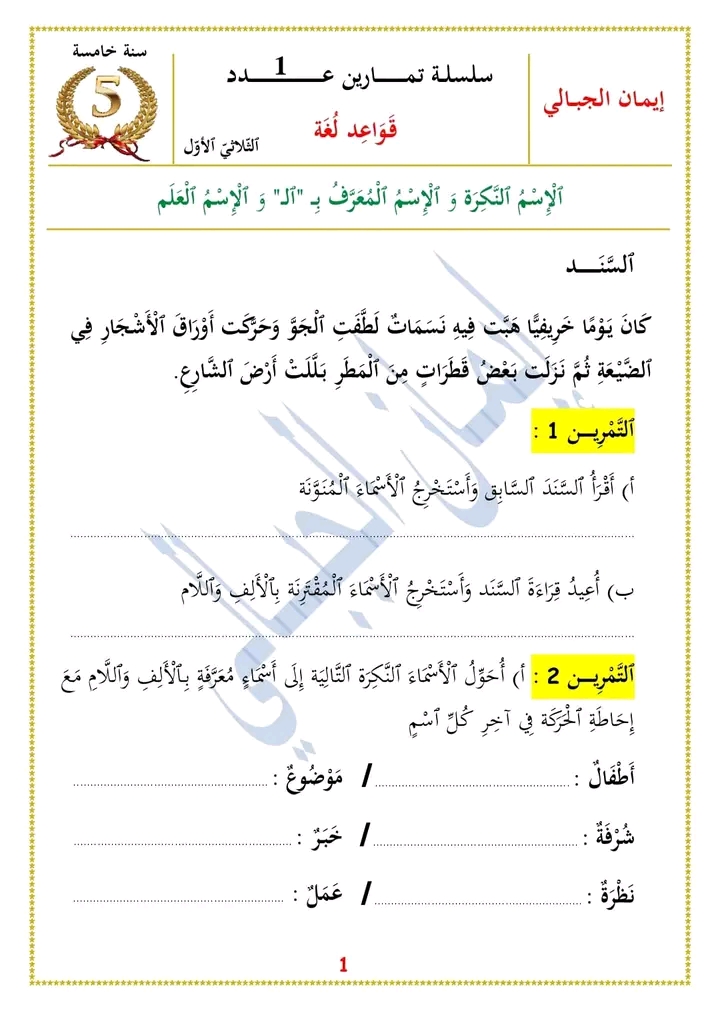 إيمان الجبالي
سلسلة تمارين عدد 1
قَوَاعِد لُغَة
ٱلثّلاثيّ ٱلأوّل
سنة خامسة
5
ٱلْإِسْمُ ٱلنَّكِرَة وَ ٱلْإِسْمُ ٱلْمُعَرَّفُ بِـ "ٱلـ" وَ ٱلْإِسْمُ ٱلْعَلَم
ٱلسَّنَــد
كَانَ يَوْمًا خَرِيفِيًّا هَبَّت فِيهِ نَسَمَاتٌ لَطَّفَتِ ٱلْجَوَّ وَحَرَّكَت أَوْرَاقَ ٱلْأَشْجَارِ فِي
ٱلضَّيْعَةِ ثُمَّ نَزَلَت بَعْضُ قَطَرَاتٍ مِنَ ٱلْمَطَرِ بَلَّلَتْ أَرْضَ ٱلشَّارِعِ.
ٱلتَّمْرِيــن 1 :
أ) أَقْرَأُ ٱلسَّنَدَ ٱلسَّابِق وَأَسْتَخْرِجُ ٱلْأَسْمَاءَ ٱلْمُنَوَّنَة
ب) أُعِيدُ قِرَاءَةَ ٱلسَّنَد وَأَسْتَخْرِجُ ٱلْأَسْمَاءَ ٱلْمُقْتَرِنَة بِٱلْأَلِفِ وَٱللَّام
ٱلتَّمْرِيــن 2 : أ) أُحَوِّلُ ٱلْأَسْمَاءَ ٱلنَّكِرَة ٱلتَّالِيَة إِلَى أَسْمَاءٍ مُعَرَّفَةٍ بِٱلْأَلِفِ وَٱللَّامِ مَعَ
إِحَاطَةِ ٱلْحَرَكَة فِي آخِرِ كُلِّ ٱسْمٍ
أَطْفَالٌ : ........ / مَوْضُوعٌ : ........
شُرْفَةٌ : ........ / خَبَرٌ : ........
نَظْرَةٌ : ........ / عَمَلٌ : ........
1
إيمان الجبالي